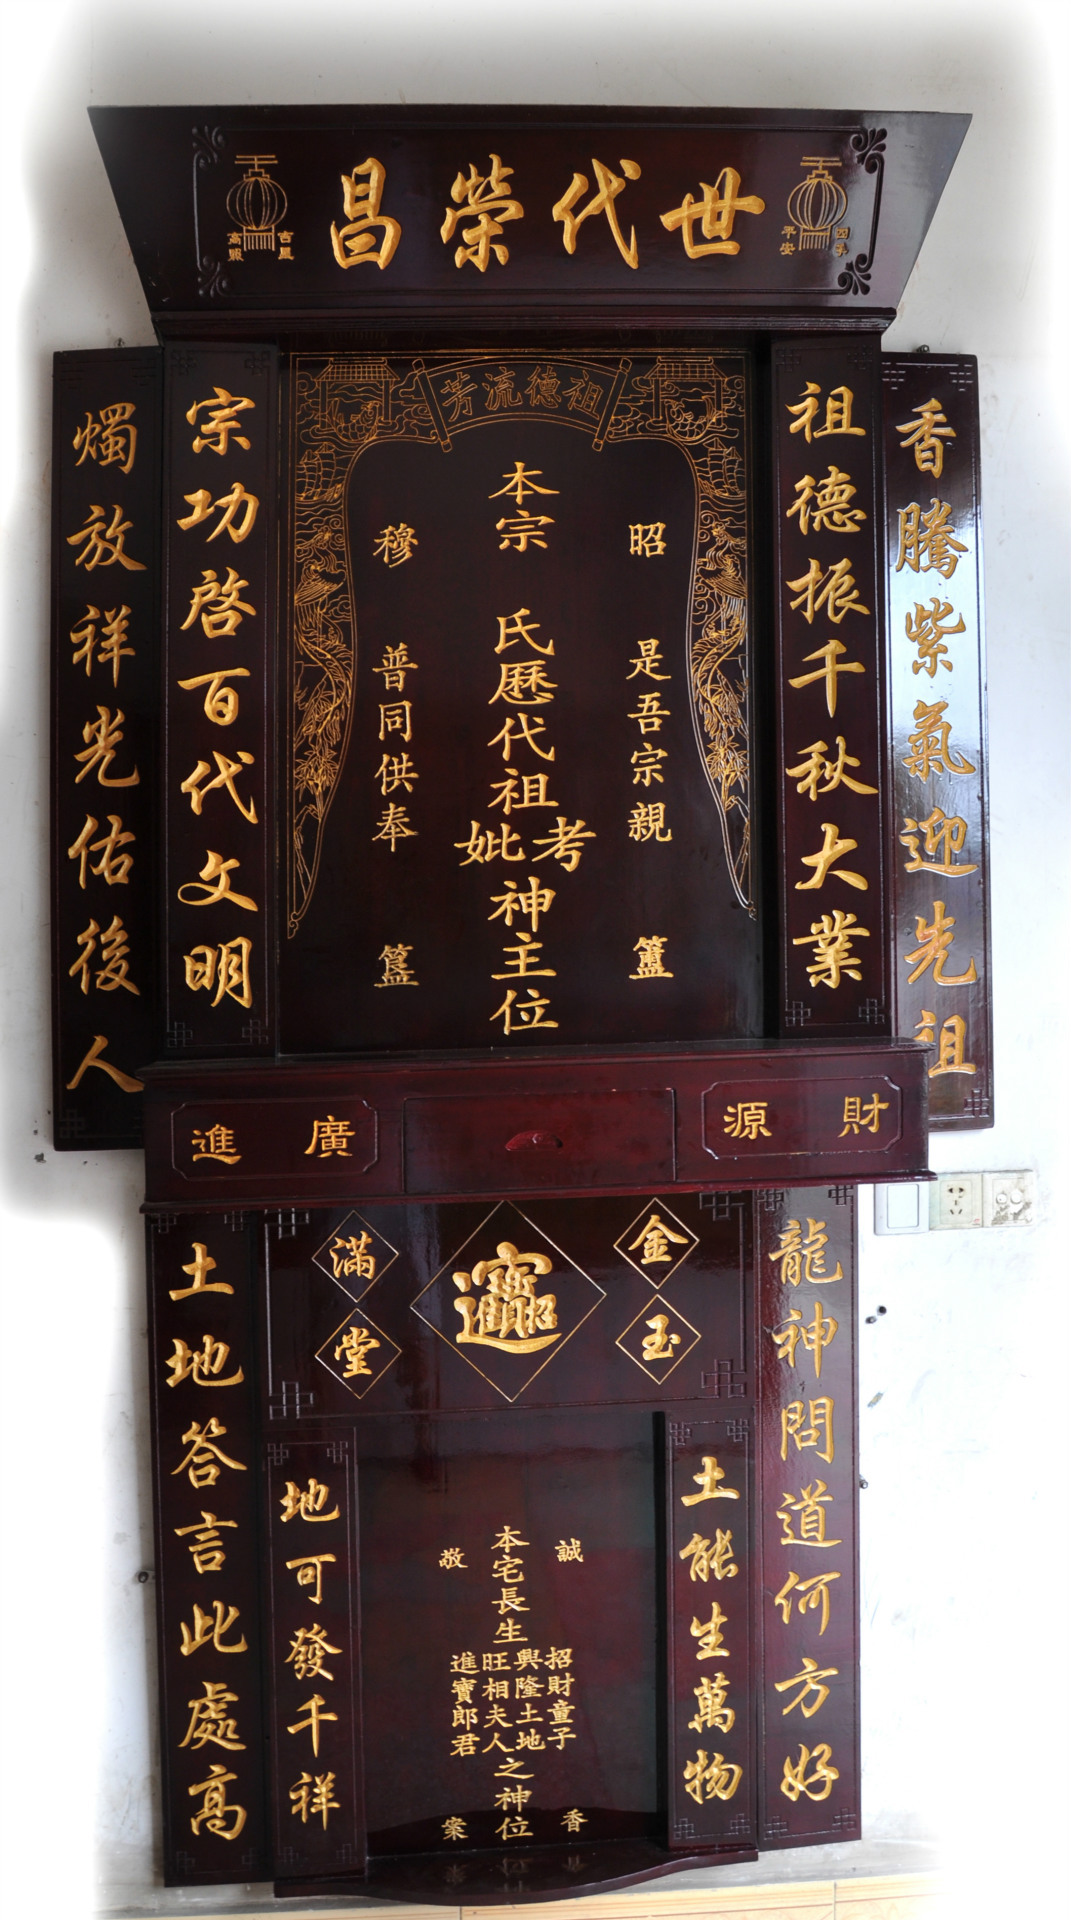 世代榮昌
四季平安
吉星高照
祖德流芳
香騰紫氣迎先祖
燭放祥光佑後人
祖德振千秋大業
宗功啓百代文明
昭是吾宗親簠
本宗 氏歷代祖考妣神主位
穆普同供奉簋
財源
廣進
金玉
招財進寶
滿堂
龍神問道何方好
土地答言此處高
土能生萬物
地可發千祥
誠
香
本宅長生
招財童子
興隆土地
旺相夫人
進寶郎君
之神位
敬
案